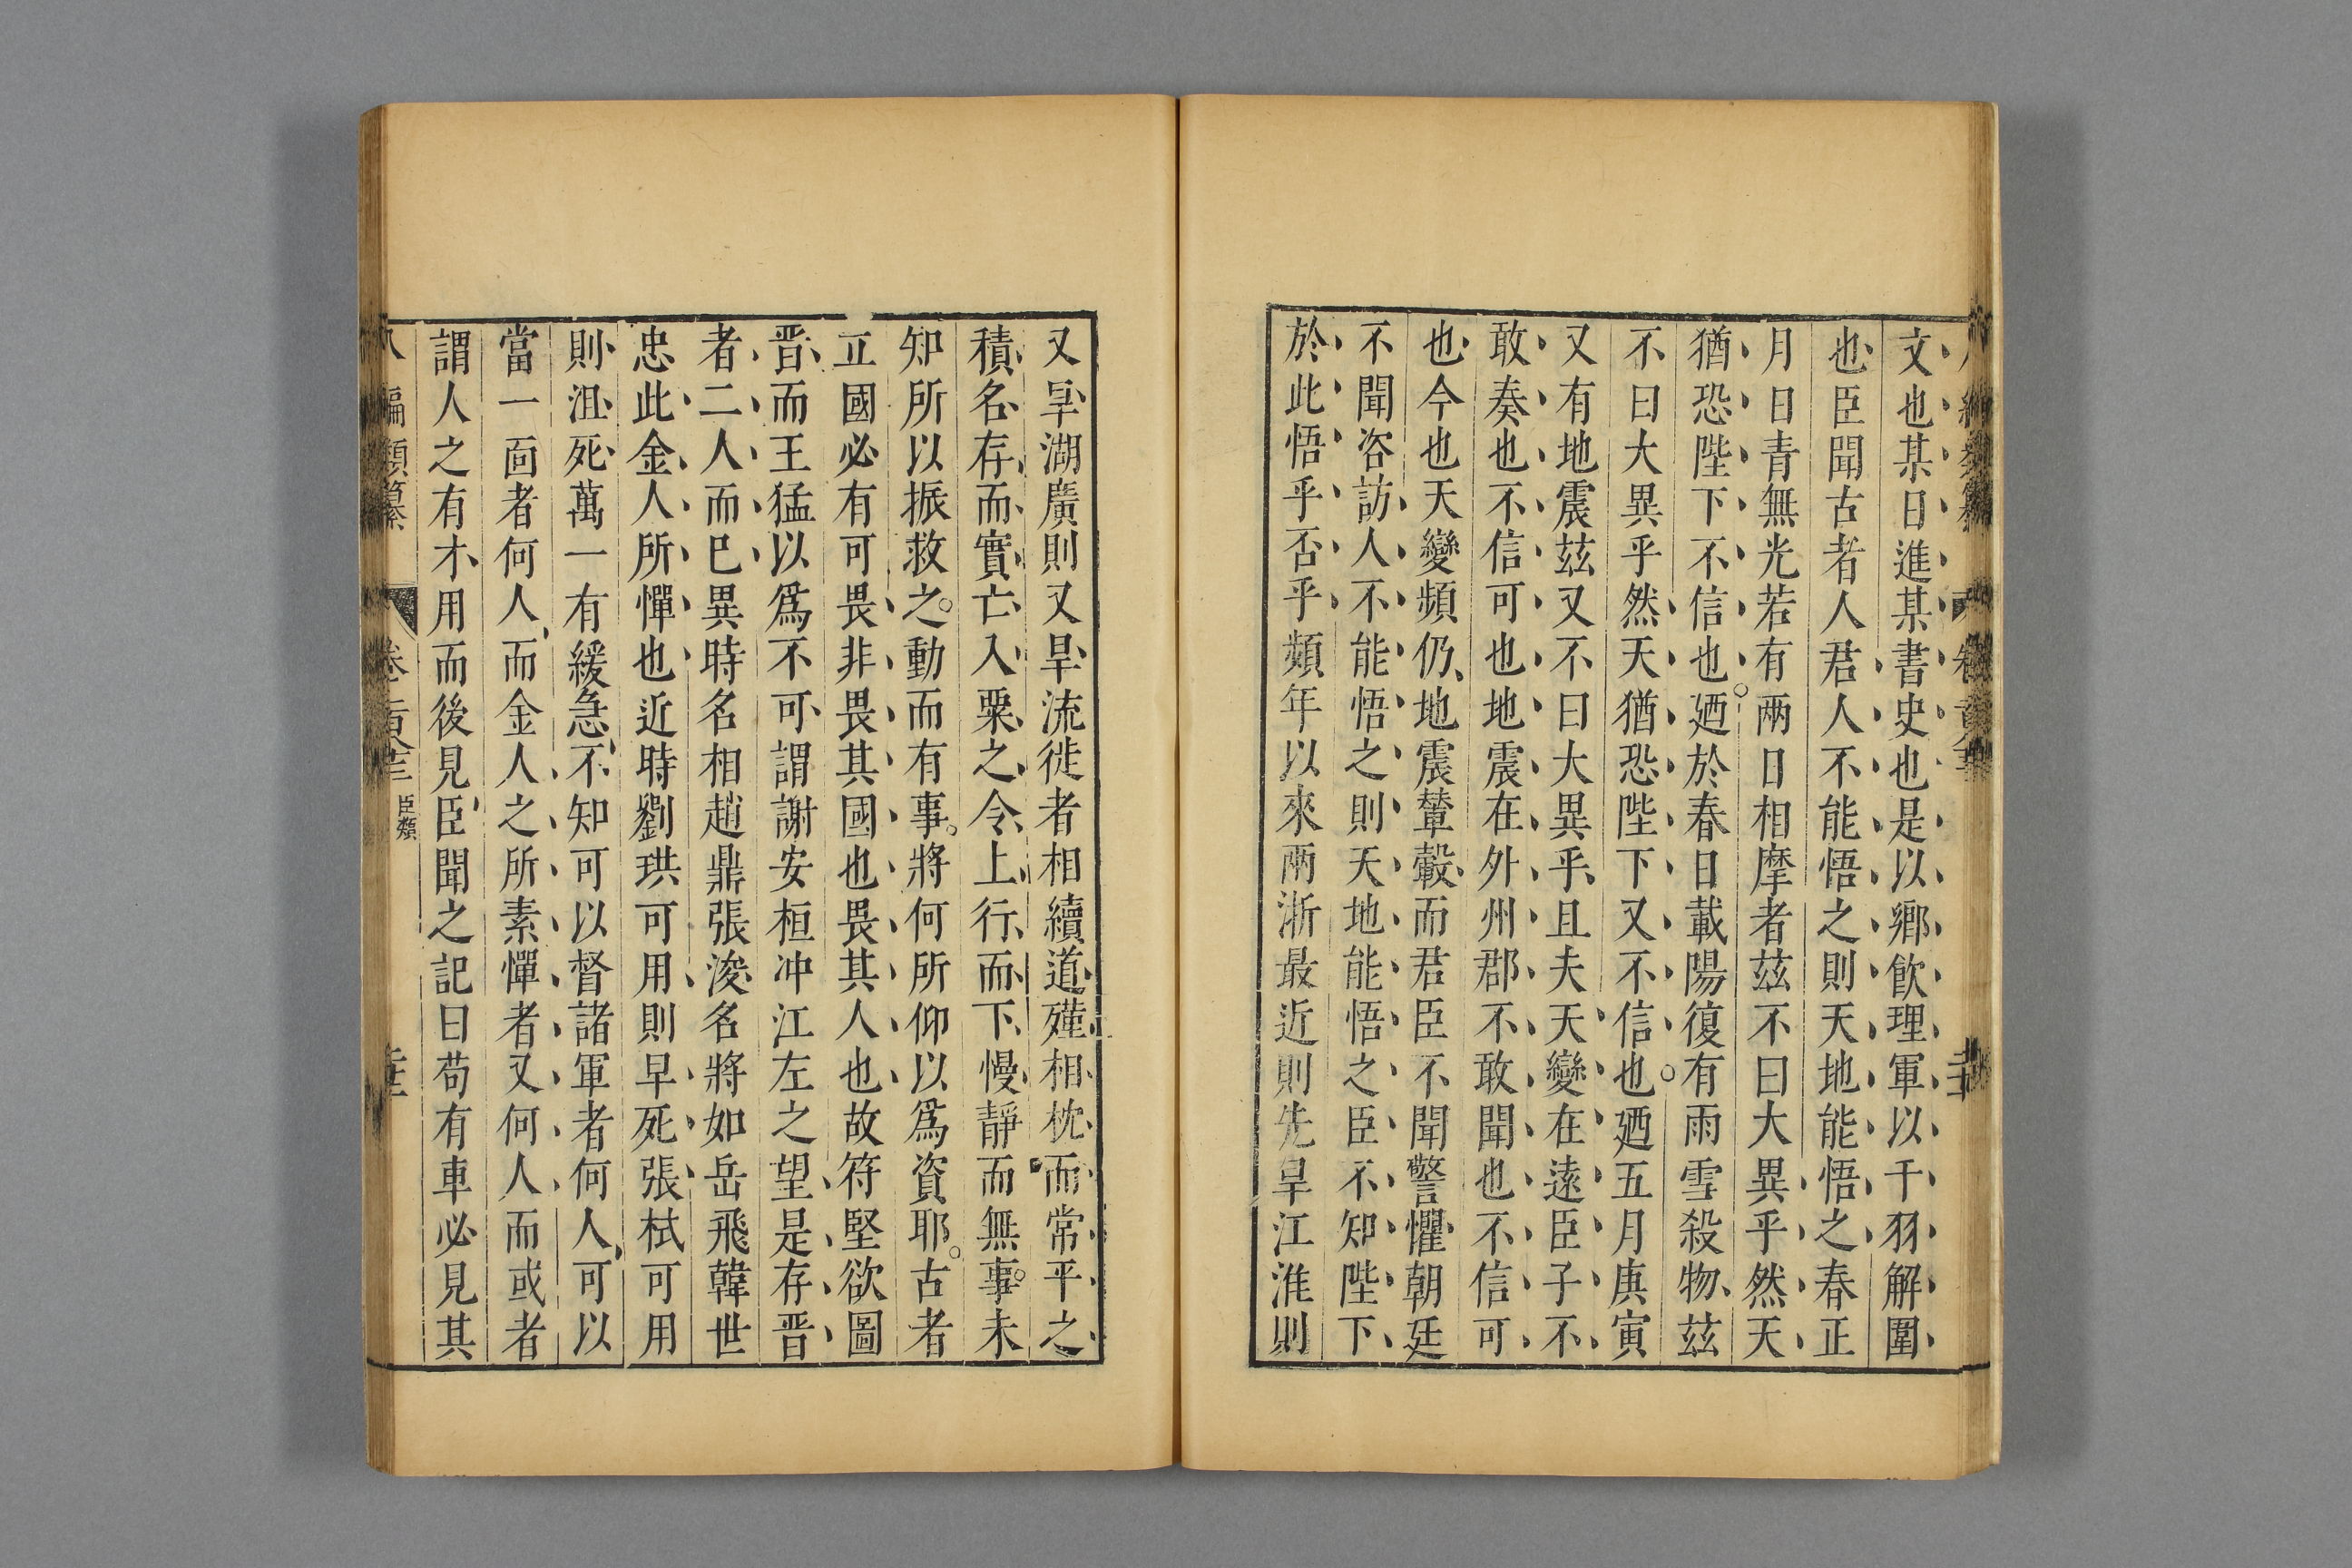 文也某日進某書史也是以鄉飲理軍以干羽解圍
也臣聞古者人君人不能悟之則天地能悟之春正
月日青無光若有兩日相摩者茲不曰大異乎然天
猶恐陛下不信也廼於春日載陽復有雨雪殺物茲
不曰大異乎然天猶恐陛下又不信也廼五月庚寅
又有地震茲又不曰大異乎且夫天變在遠臣子不
敢奏也不信可也地震在外州郡不敢聞也不信可
也今也天變頻仍地震輦轂而君臣不聞警懼朝廷
不聞咨訪人不能悟之則天地能悟之臣不知陛下
於此悟乎否乎頻年以來兩浙最近則先旱江淮則
又旱湖廣則又旱流徙者相續道殣相枕而常平之
積名存而實亡入粟之令上行而下慢靜而無事未
知所以振救之動而有事將何所仰以爲資耶古者
立國必有可畏非畏其國也畏其人也故符堅欲圖
晋而王猛以爲不可謂謝安桓冲江左之望是存晋
者二人而已異時名相趙鼎張浚名將如岳飛韓世
忠此金人所憚也近時劉珙可用則早死張栻可用
則沮死萬一有緩急不知可以督諸軍者何人可以
當一面者何人而金人之所素憚者又何人而或者
謂人之有才用而後見臣聞之記曰苟有車必見其
八編類纂 卷一百八十三 臣類